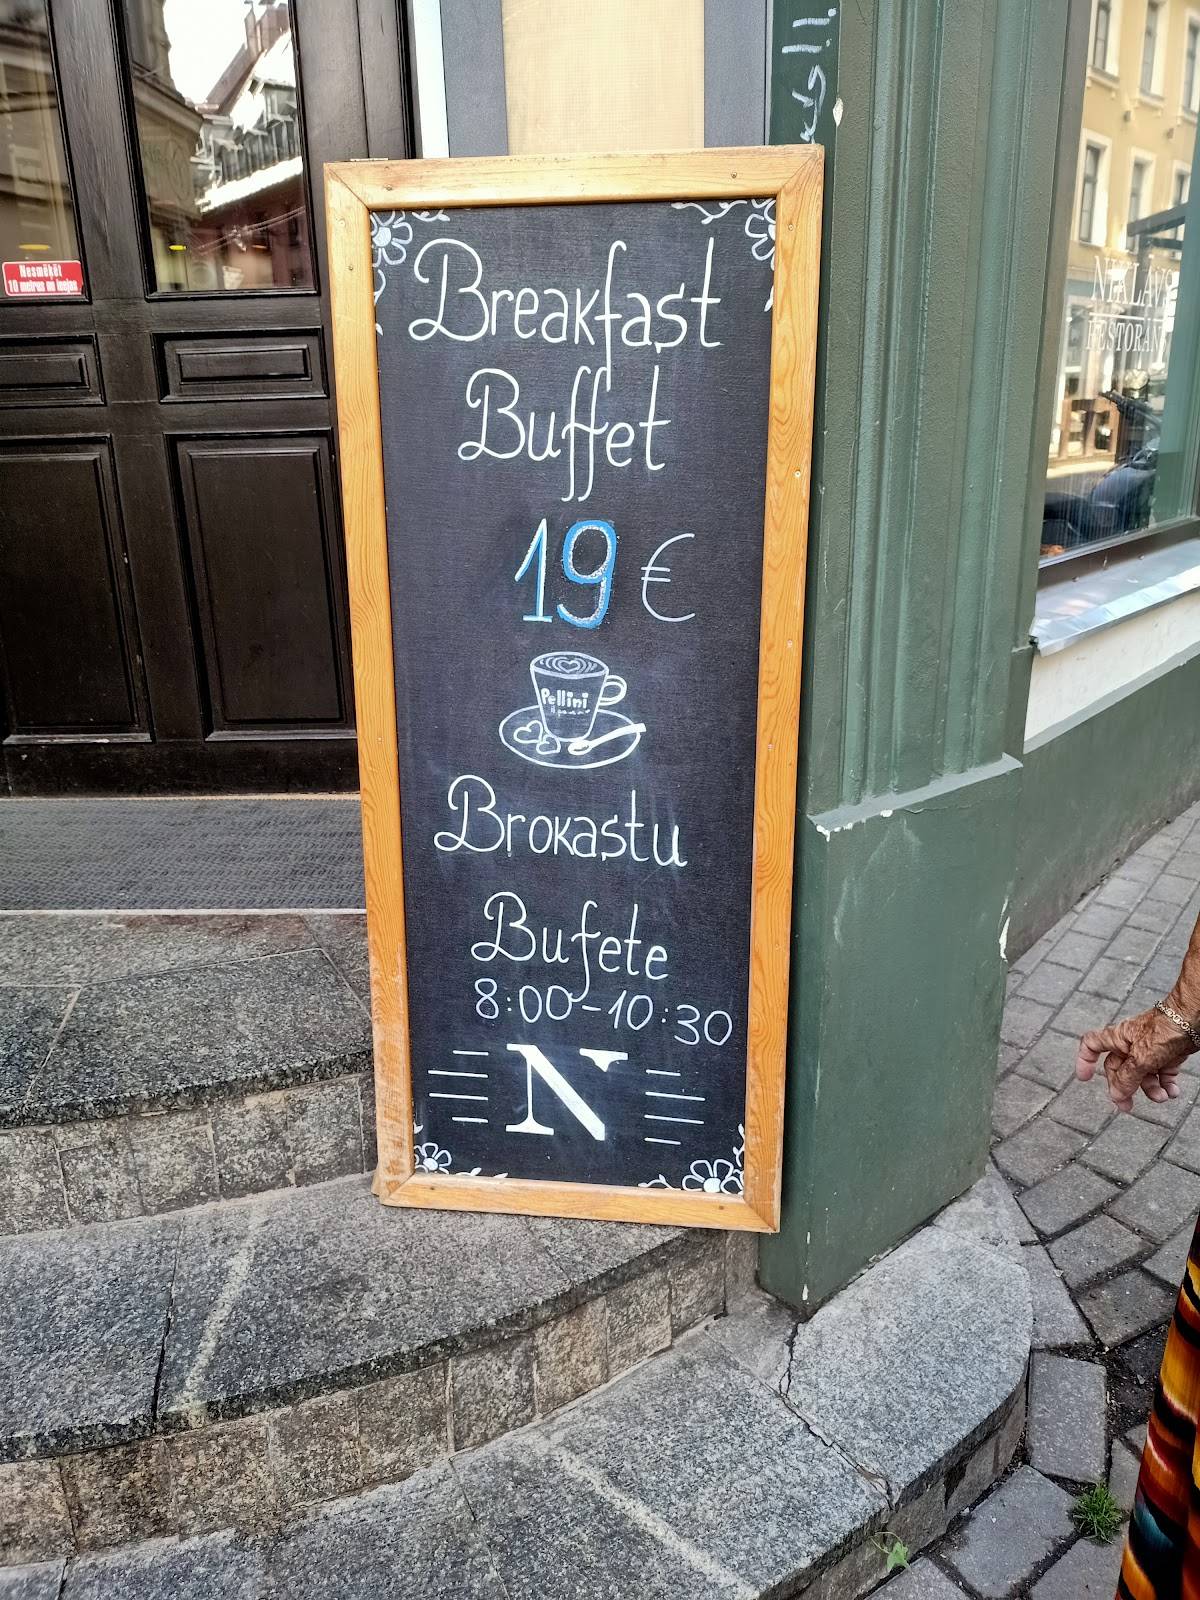 Nesmēķēt
10 metrus no ieejas
Breakfast
Buffet
19 €
Pellini
Brokastu
Bufete
8:00-10:30
N
NIKLĀVS
RESTORĀNS